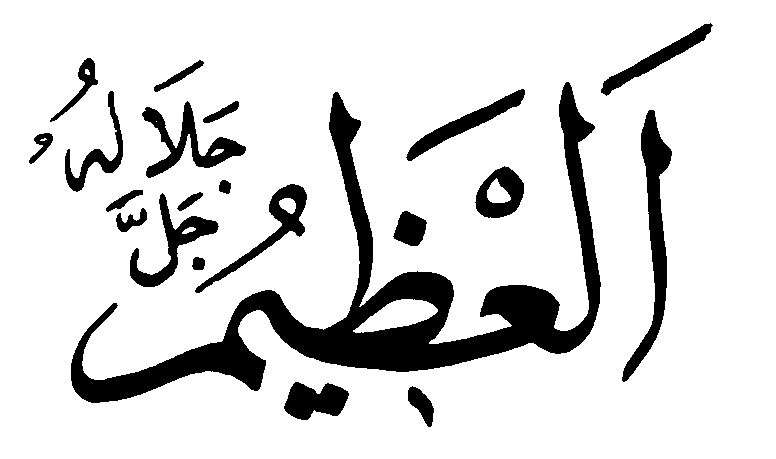 اَلْعَظِيمُ
جَلَّ
جَلَالُهُ